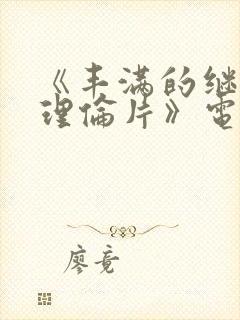 《丰满的继
理倫片》電
廖竟